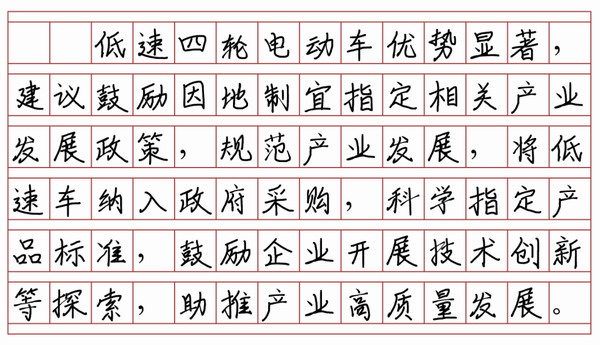 低速四轮电动车优势显著，
建议鼓励因地制宜指定相关产业
发展政策，规范产业发展，将低
速车纳入政府采购，科学指定产
品标准，鼓励企业开展技术创新
等探索，助推产业高质量发展。